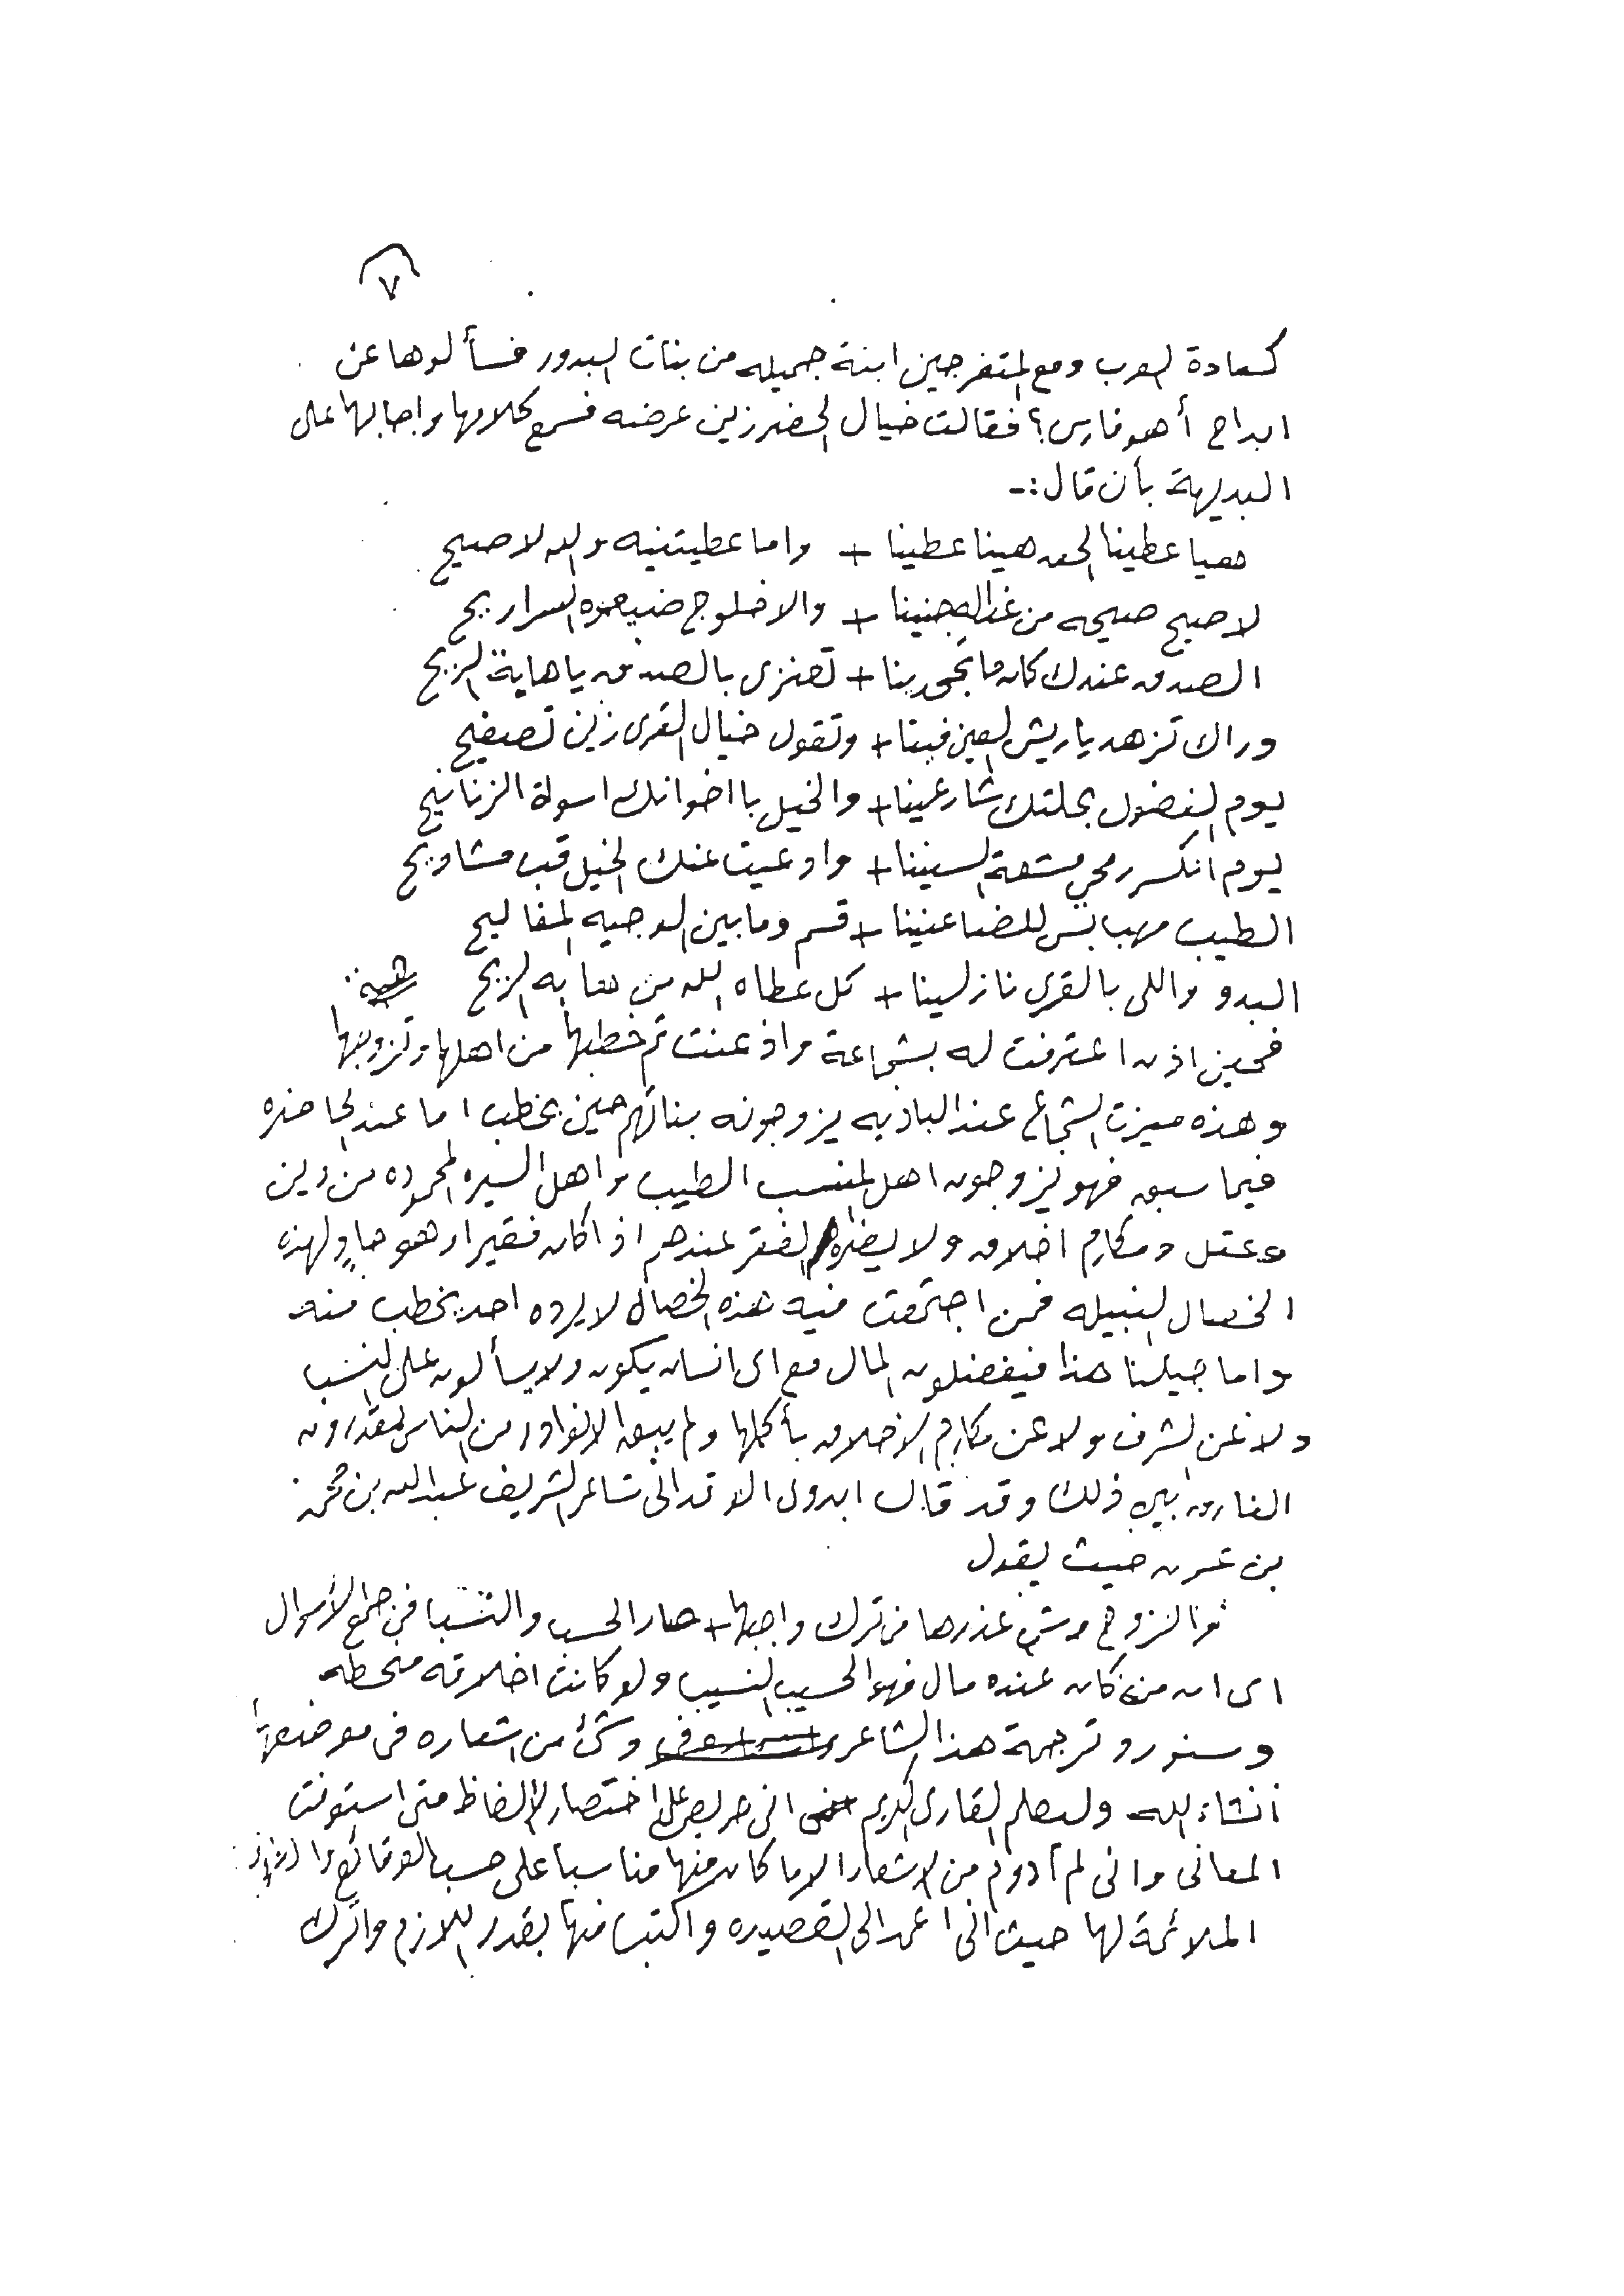 ٧
كعادة العرب ومع المتفرجين ابنة جميله من بنات البدور فسألوها عن
ابداح أهو فارس؟ فقالت خيال الحضر زين عرضه فسمع كلامها واجابها على
البديهة بأن قال:-
هميا عطينا الحق هينا عطينا + واما عطيتنيه والله لا صيح
لا صيح صيحه من غدالہ جنينا + والا خلوج ضيعوه السراريح
الصدق عندك كان ما تجحدينا + تهنزي بالصدق يا هاية الريح
وراك تزهد يا ريش العين فينا + وتقول خيال القرى زين تصفيح
يوم الفضول بحلتك شارعينا + والخيل باخوانك اسواة الزنانيح
يوم انكسر رمحي شمعة السنينا + واوعيت عنك الخيل قب مشاويح
الطيب مهب بس للضاعنينا + قسم وما بين الوجيه المفاليح
البدو واللي بالقرى نازلينا + كل عطاه الله من هابه الريح
فحين اذن اعترفت له بشجاعة واذعنت ثم خطبها من اهلها وتزوجها
وهذه ميزت الشجاع عند الباديه يزوجونه بناتهم حين يخطب اما عند الحاضره
فيما سبق فهو يزوجون اهل المنسب الطيب واهل السيره المحموده من دين
وعقل ومكارم اخلاق ولا يضره الفقر عندهم اذا كان فقيرا وهو حاوٍ لهذه
الخصال النبيله فمن اجتمعت فيه هذه الخصال لا يرده احد يخطب منه
واما جيلنا هذا فيفضلون المال مع اي انسان يكون ولا يسألون على النسب
ولا عن الشرف ولا عن مكارم الاخلاق بأكملها ولم يبق الا نوادر من الناس يقدرون
الفارق بين ذلك وقد قال ابدول الوقداني شاعر الشريف عبدالله بن محمد
بن عون حيث يقول
الزوج وش عذرها من ترك واجبها + صار الحسب والنسب في جمع الاموال
اى ان من كان عنده مال فهو الحسيب النسيب ولو كانت اخلاقه منحطه
وسنورد ترجمة هذا الشاعر وشئ من اشعاره في موضعها
انشاء الله وليعلم القارى الكريم انى حريص على اختصار الالفاظ متى استوفت
المعانى وانى لم ادون من الاشعار الا ما كان منها مناسبا على حسب الوقائع
الملائمة لها حيث انى اعمد الى القصيده واكتب منها بقدر اللازم واترك